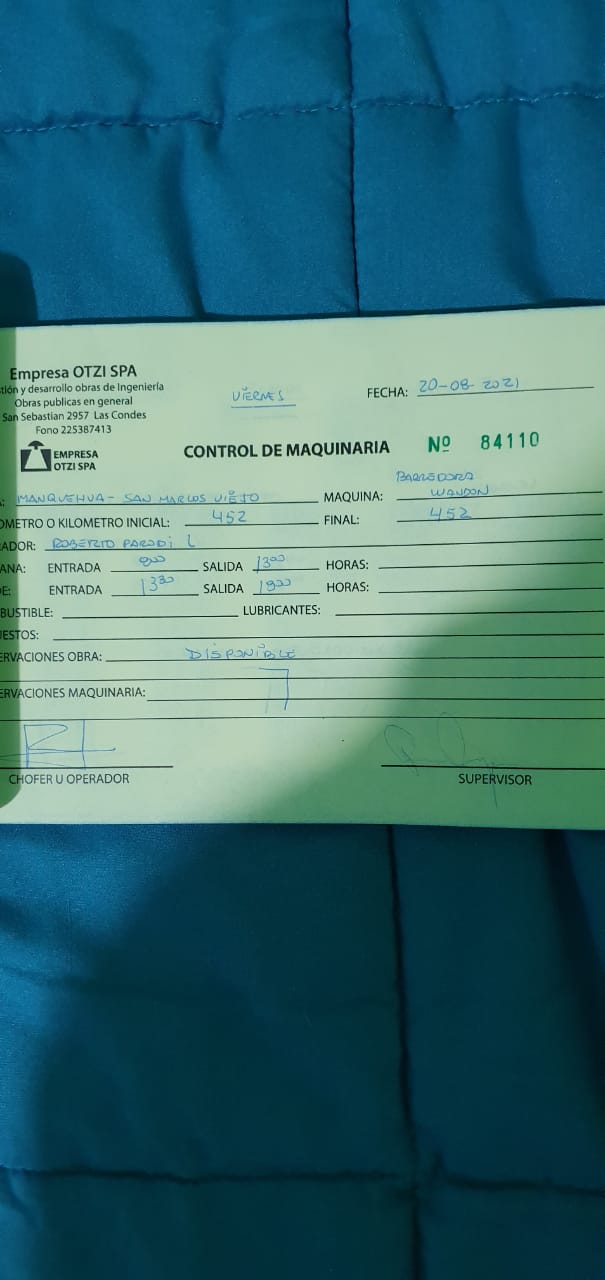 Empresa OTZI SPA
tión y desarrollo obras de Ingeniería
Obras publicas en general
San Sebastian 2957 Las Condes
Fono 225387413
EMPRESA
OTZI SPA
VIERNES
FECHA: 20-08-2021
CONTROL DE MAQUINARIA Nº 84110
A: MANQUEHUA - SAN MARCOS VIEJO MAQUINA: BARREDORA
WALDON
OMETRO O KILOMETRO INICIAL: 452 FINAL: 452
ADOR: ROBERTO PARODI L
ANA: ENTRADA 800 SALIDA 1300 HORAS:
E: ENTRADA 1330 SALIDA 1800 HORAS:
BUSTIBLE: LUBRICANTES:
UESTOS:
ERVACIONES OBRA: DISPONIBLE
ERVACIONES MAQUINARIA:
CHOFER U OPERADOR SUPERVISOR